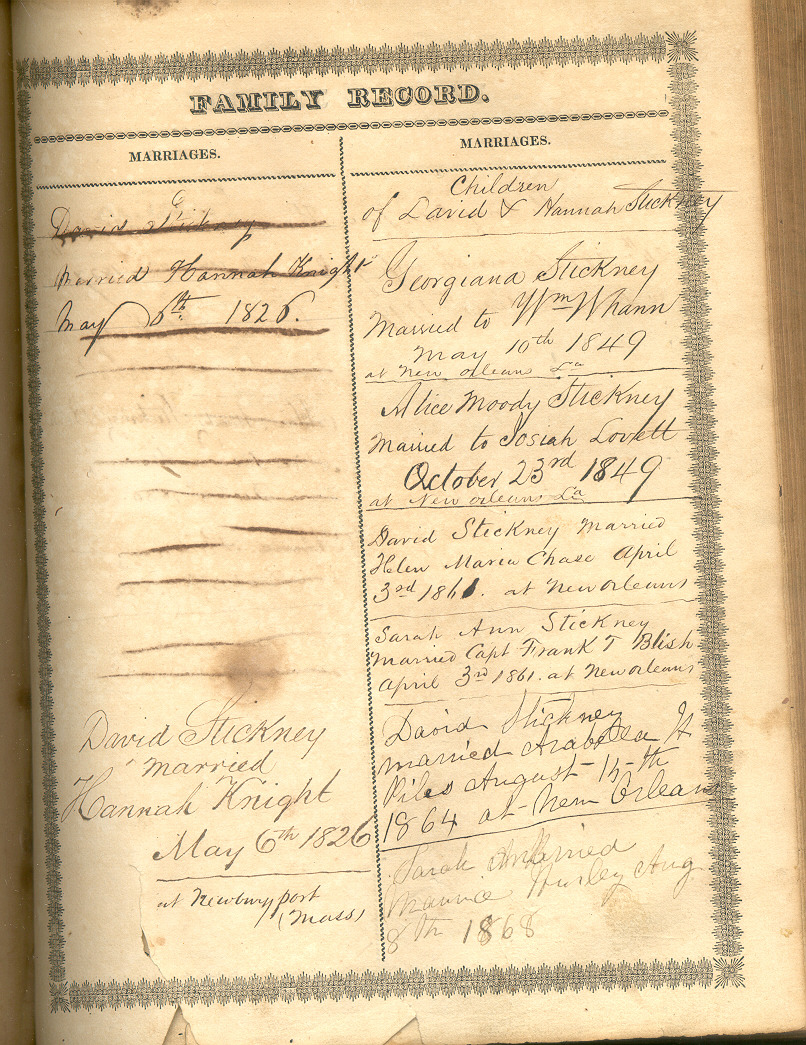 FAMILY RECORD.
MARRIAGES.
David Stickney
Married Hannah Knight
May 6th 1826.
David Stickney
married
Hannah Knight
May 6th 1826
at Newburyport
(Mass)
MARRIAGES.
Children
of David & Hannah Stickney
Georgiana Stickney
Married to Wm Whann
May 10th 1849
at New Orleans La
Alice Moody Stickney
Married to Josiah Lovett
October 23rd 1849
at New Orleans La
David Stickney Married
Helen Maria Chase April
3rd 1861. at New Orleans
Sarah Ann Stickney
Married Capt Frank T Blish
April 3rd 1861. at New Orleans
David Stickney
married Arabella H
Piles August 15th
1864 at New Orleans
Sarah Married
Maurice Hurley Aug
8th 1868